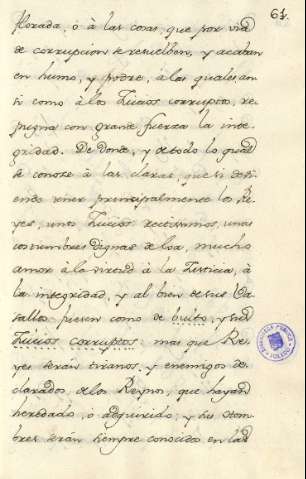 61.
florada, ó à las cosas, que por via
de corrupcion se resuelben, y acaban
en humo, y podre, á las quales, an
si como à los Juicios corruptos, re
pugna con grande fuerza la inte
gridad. De donde, y de todo lo qual
se conose à las claras, que si
endo tener principalmente los Re
yes, unos Juicios rectissimos, unas
costumbres dignas de loa, mucho
amor à la virtud à la Justicia, à
la integridad, y al bien de sus Va
sallos tienen como de bruto, y
Juicios corruptos: mas que Re
yes serán tiranos, y enemigos de
clarados de los Reynos, que hayan
heredado, ó adquirido; y sus nom
bres seran siempre conocidos en las
BIBLIOTECA PUBLICA
TOLEDO